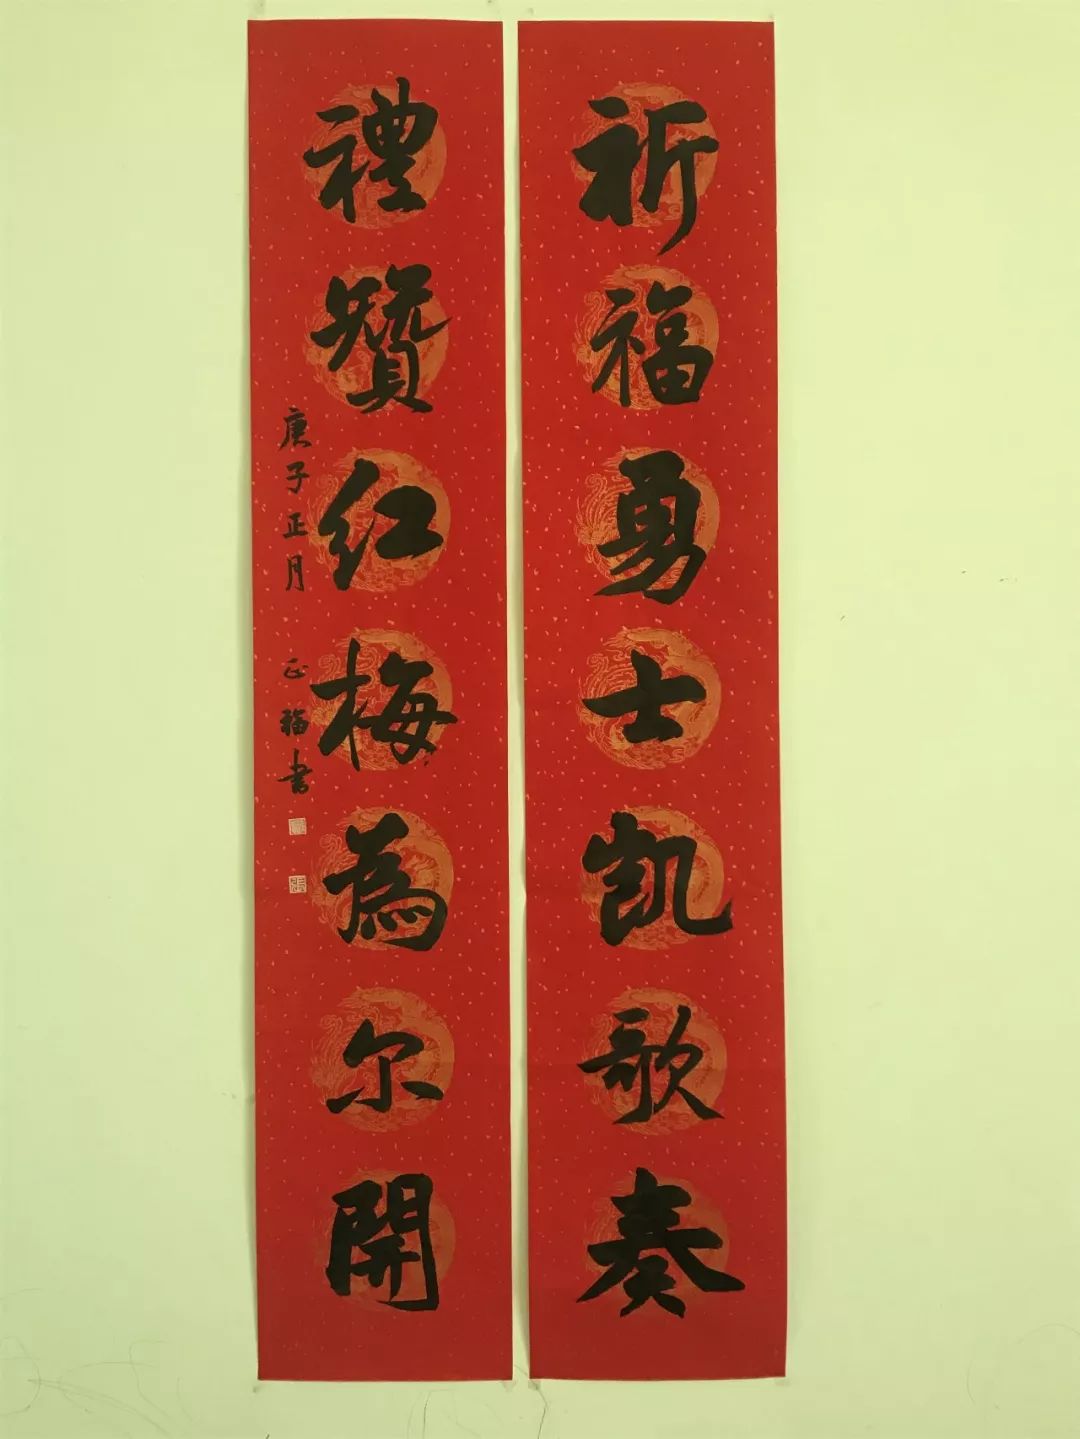 祈福勇士凯歌奏
禮贊红梅為尔開
庚子正月 正福书